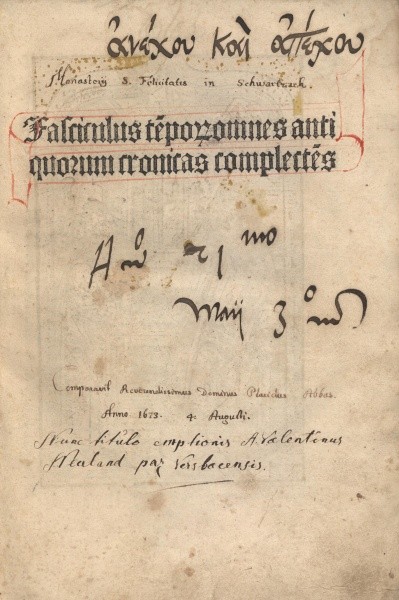 ἀνέχου καὶ ἀπέχου
Monasterij S. Felicitatis in Schwartzach.
Fasciculus tēporꝝ omnes anti
quorum cronicas complectēs
Aō 21 mo
Maij 3 o
Comparavit Reverendissimus Dominus Placidus Abbas.
Anno 1673. 4. Augusti.
Nunc titulo emptionis A Valentinus